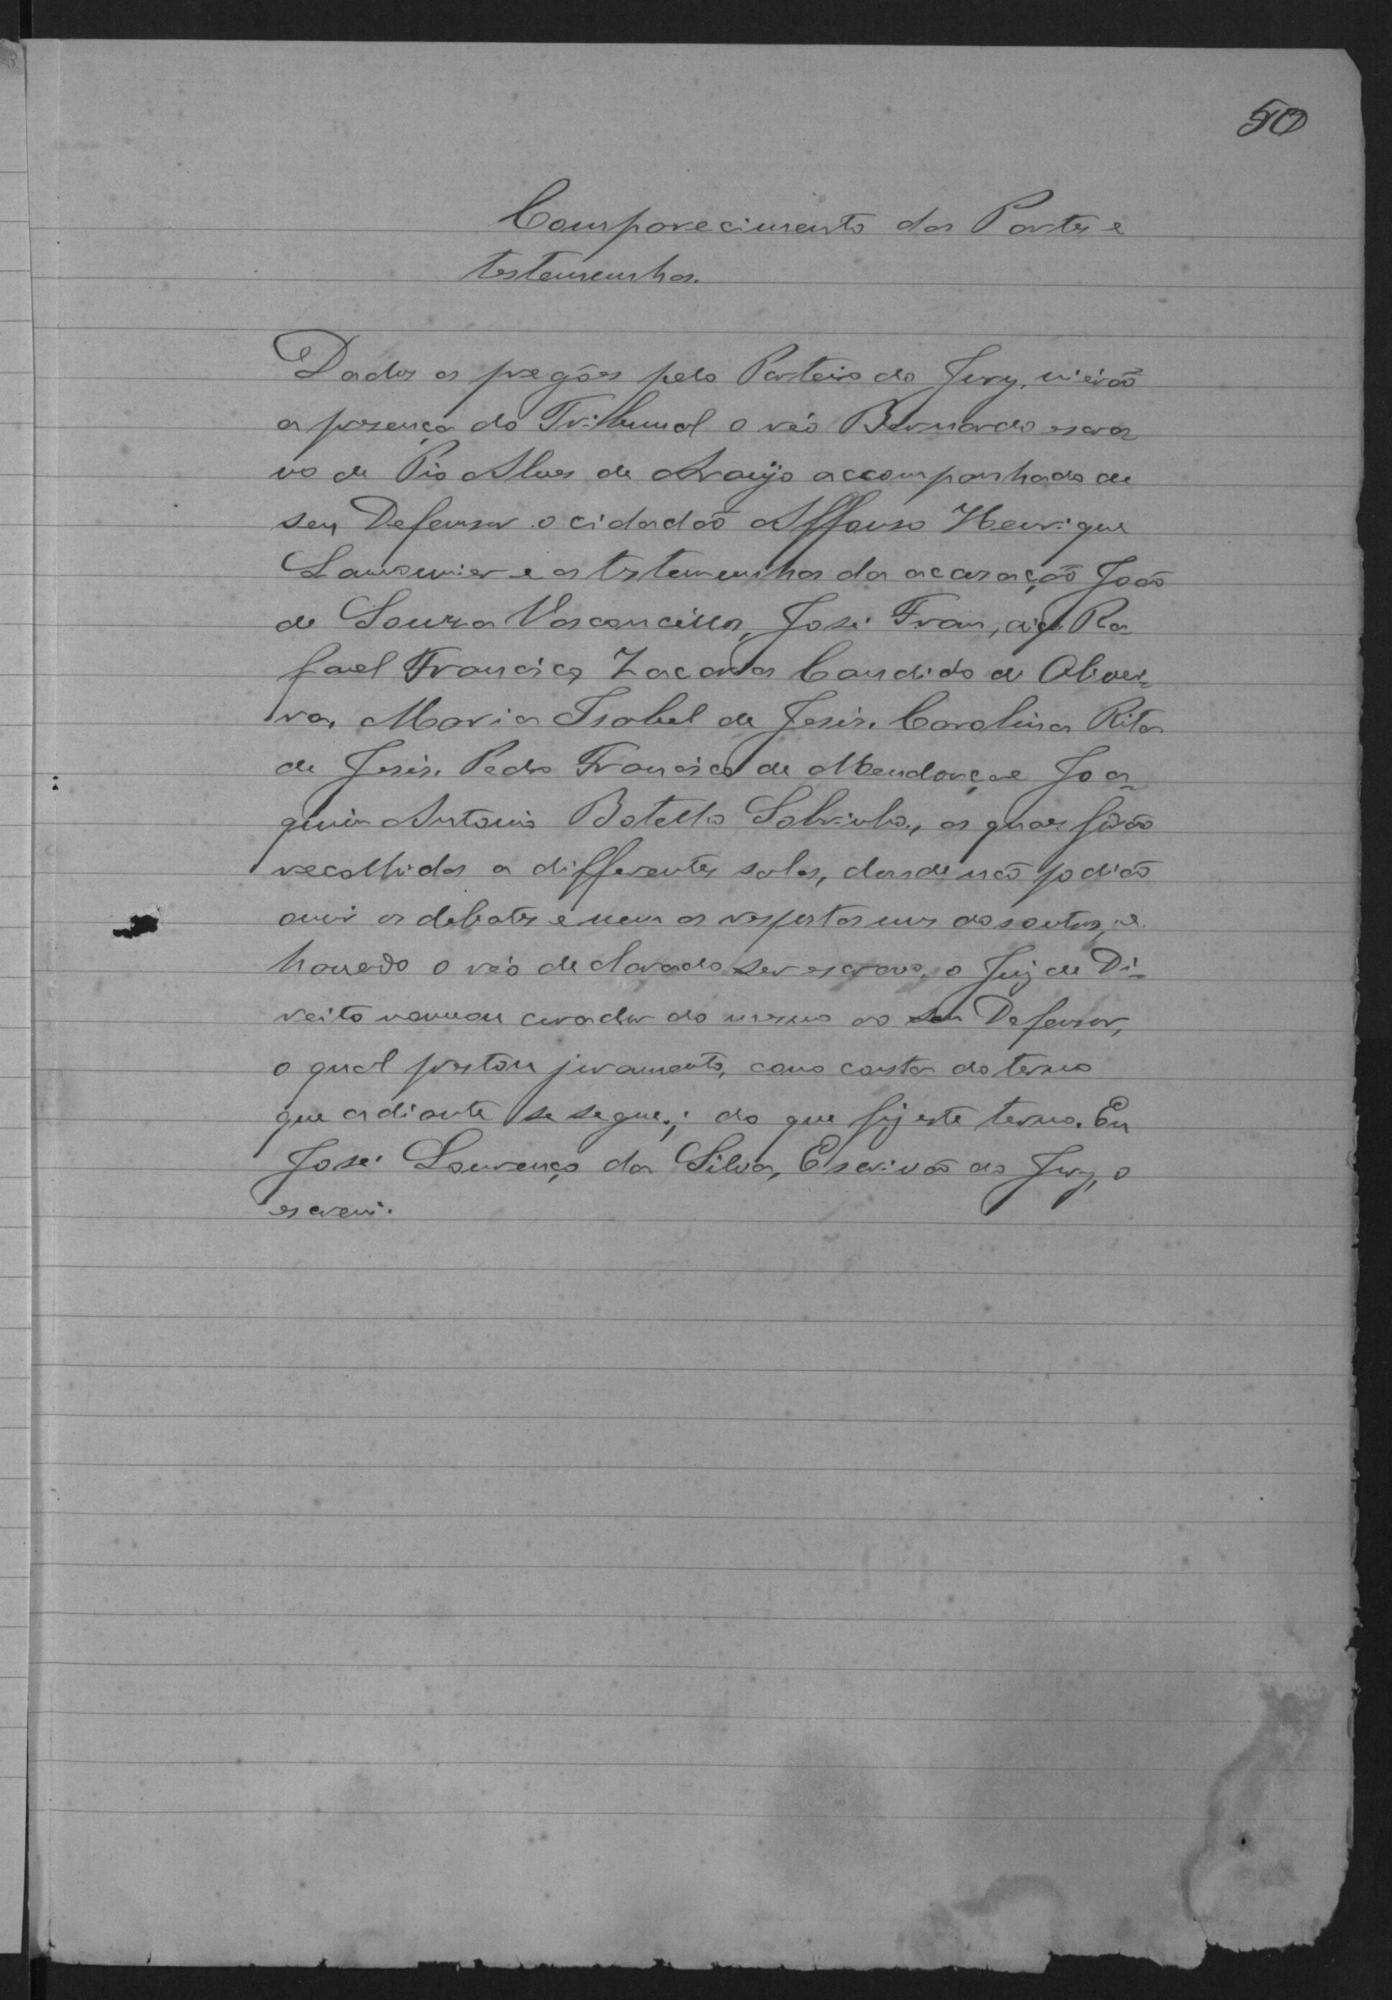 50
Comparecimento das Partes e
testemunhas.
Dados os pregões pelo Porteiro do Jury, vierão
a presença do Tribunal o réo Bernardo escra
vo de Pio Alves de Araujo accompanhado de
seu Defensor o cidadão Affonso Henrique
e as testemunhas da acazação João
de Souza Vasconcellos, José Fran, digo Ra
fael Francisco, Zacarias Candido de Olivei-
ra, Maria Isabel de Jesus, Carolina Rita
de Jesus, Pedro Francisco de Mendonça e Joa-
quim Antonio Botelho Sobrinho, as quaes forão
recolhidas a differentes salas, donde não podião
ouvir os debates e nem as respostas umas das outras, e
havendo o réo declarado ser escravo, o Juiz de Di-
reito nomeou curador do mesmo ao seu Defensor,
o qual prestou juramento, como consta do termo
que adiante se segue; do que fiz este termo. Eu
José Lourenço da Silva, Escrivão do Jury, o
escrevi.